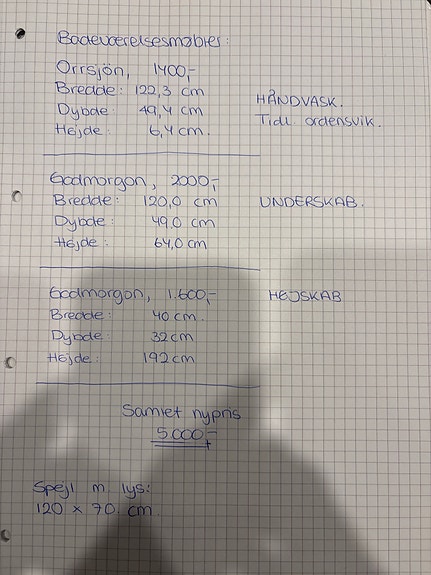 Badeværelsesmøbler:
Orrsjön, 1400,-
Bredde: 122,3 cm
Dybde: 49,4 cm
Højde: 6,4 cm.
HÅNDVASK.
Tidl. ordensvik.
Godmorgon, 2000,-
Bredde: 120,0 cm
Dybde: 49,0 cm
Højde: 64,0 cm
UNDERSKAB.
Godmorgon, 1.600,-
Bredde: 40 cm.
Dybde: 32 cm
Højde: 192 cm
HØJSKAB
Samlet nypris
5.000,-
Spejl m. lys:
120 x 70 cm